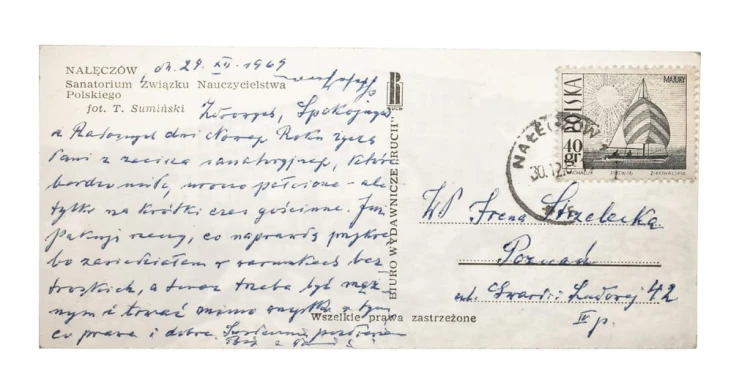 NAŁĘCZÓW dn. 29. XII. 1969
Sanatorium Związku Nauczycielstwa
Polskiego
fot. T. Sumiński
Zdrowych, Spokojnych
a Radosnych dni Nowego Roku życzę
Pani z zacisza sanatoryjnego, które
bardzo miłe, uroczo położone - ale
tylko na krótki czas gościnne. Już
pakuję rzeczy, co naprawdę przykre
bo zasiedziałem w warunkach bez
troskich, a teraz trzeba być męż
nym i trwać mimo wszystko z tym
co prawe i dobre. Serdecznie pozdrawiam
BIURO WYDAWNICZE "RUCH"
Wszelkie prawa zastrzeżone
POLSKA
MAZURY
40 gr
NAŁĘCZÓW
30.12
WP Irena Strzelecka
Poznań
ul. Gwardii Ludowej 42
IV p.